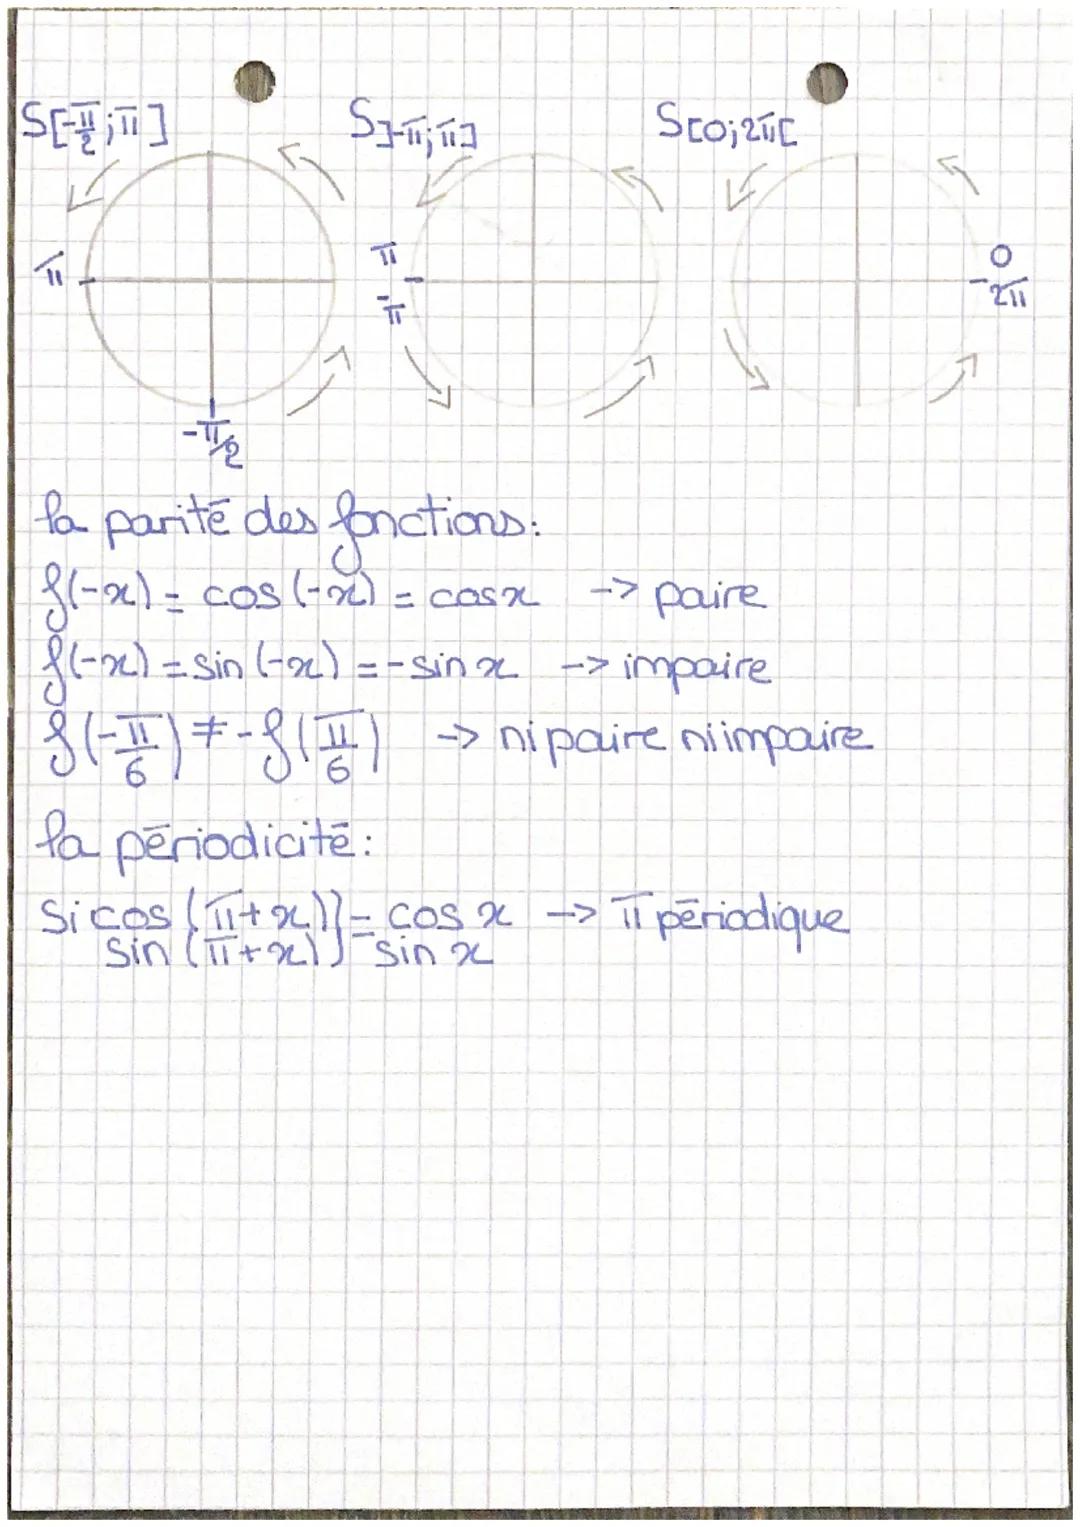 S[-π/2;π] S]-π;π] S[0;2π[
π
π
-π
0
2π
-π/2
la parité des fonctions:
f(-x) = cos(-x) = cosx -> paire
f(-x) = sin(-x) = -sin x -> impaire
f(-π/6) ≠ -f(π/6) -> ni paire ni impaire
la périodicité:
Si cos (π+x)} = cos x -> π périodique
sin (π+x)} sin x